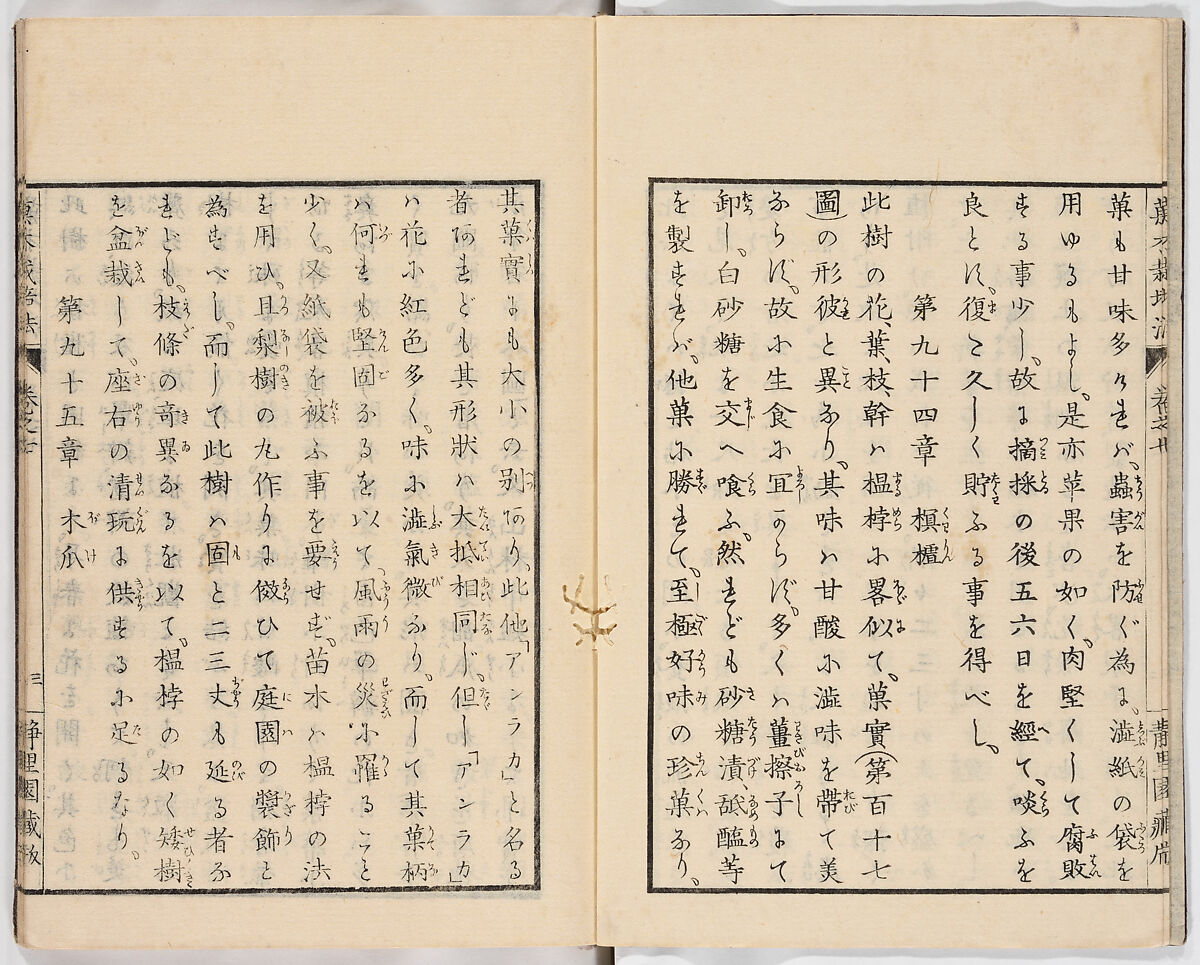 菓木栽培法
卷之七
静里園藏版
菓も甘味多ケれバ、蟲害を防ぐ為に、澁紙の袋を
用ゆるもよし、是亦苹果の如く、肉堅くして腐敗
する事少し、故に摘採の後五六日を經て、啖ふを
良とに、復こ久しく貯ふる事を得べし、
第九十四章 榠櫨
此樹の花、葉、枝、幹ハ榲桲に畧似て、菓實(第百十七
圖)の形彼と異なり、其味ハ甘酸に澁味を帶て美
ならず、故に生食に宜からず、多くハ薑擦子にて
卸し、白砂糖を交へ喰ふ、然れども砂糖漬、舐醢等
を製すれバ、他菓に勝れて、至極好味の珍菓なり、
其菓實にも大小の別あり、此他「アンラカ」と名る
者あれども其形狀ハ大抵相同じ、但し「アンラカ」
ハ花に紅色多く、味に澁氣微なり、而して其菓柄
ハ何れも堅固なるを以て、風雨の災に罹ること
少く、又紙袋を被ふ事を要せず、苗木ハ榲桲の法
を用ひ、且梨樹の丸作りに倣ひて庭園の裝飾と
為すべし、而して此樹ハ固と二三丈も延る者な
れども、枝條の奇異なるを以て、榲桲の如く矮樹
を盆栽して、座右の清玩に供するに足るなり、
第九十五章 木瓜
菓木栽培法
卷之七
三
静里園藏版